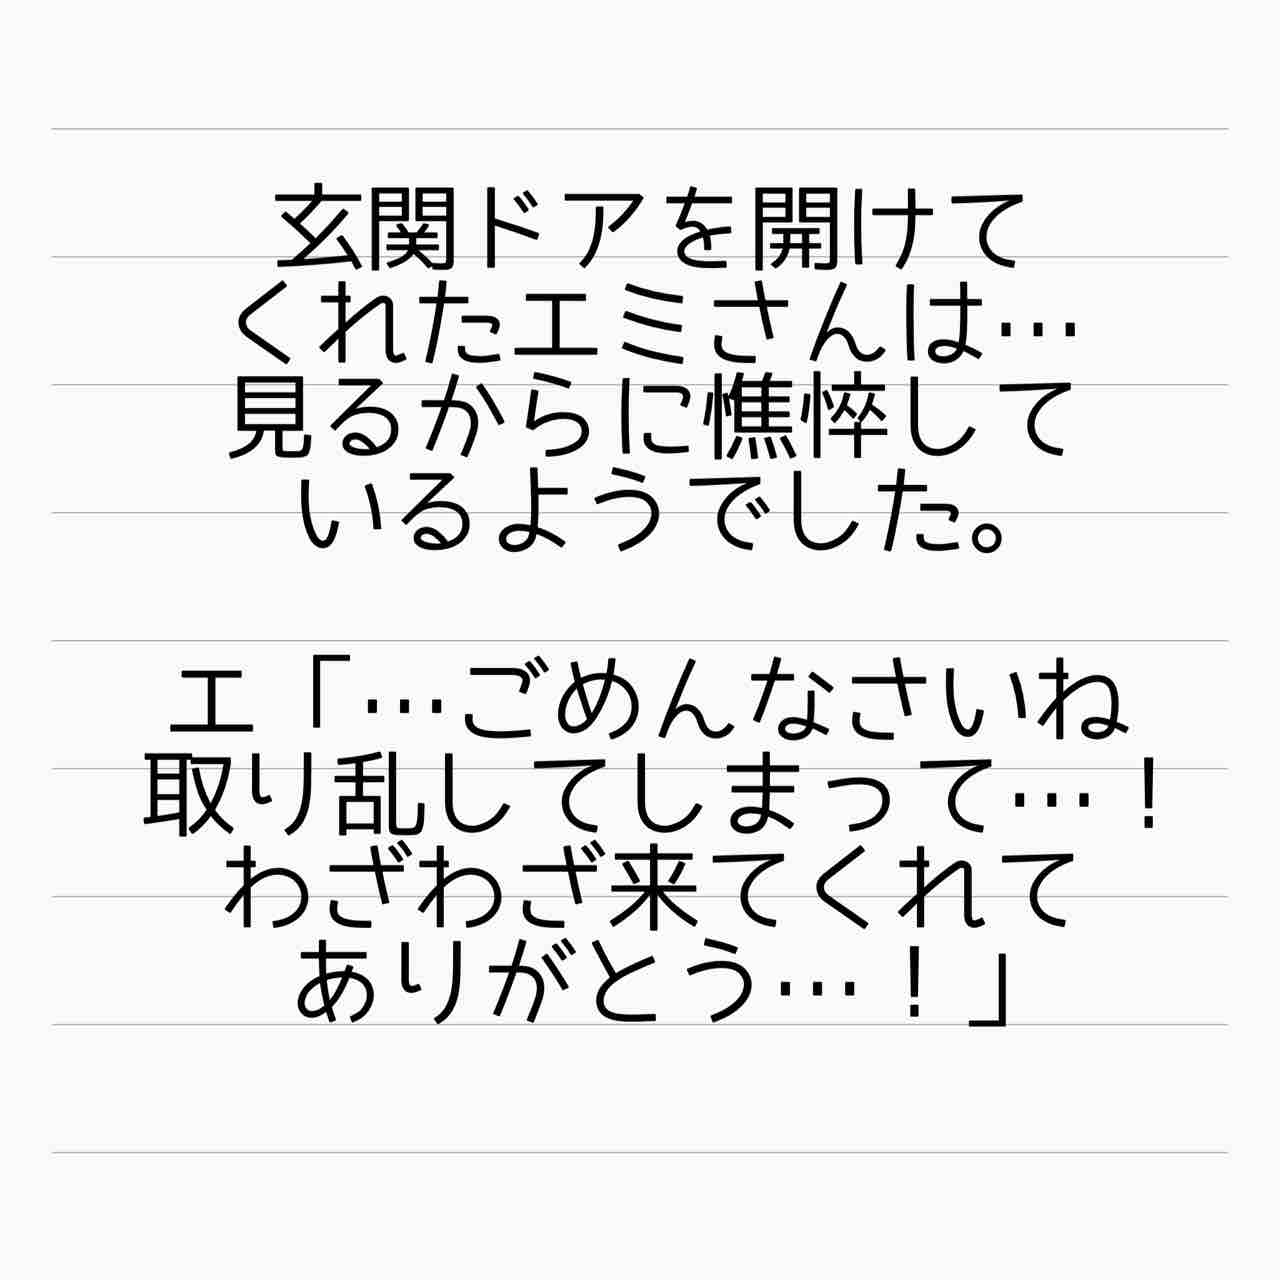 玄関ドアを開けて
くれたエミさんは…
見るからに憔悴して
いるようでした。
エ「…ごめんなさいね
取り乱してしまって…！
わざわざ来てくれて
ありがとう…！」